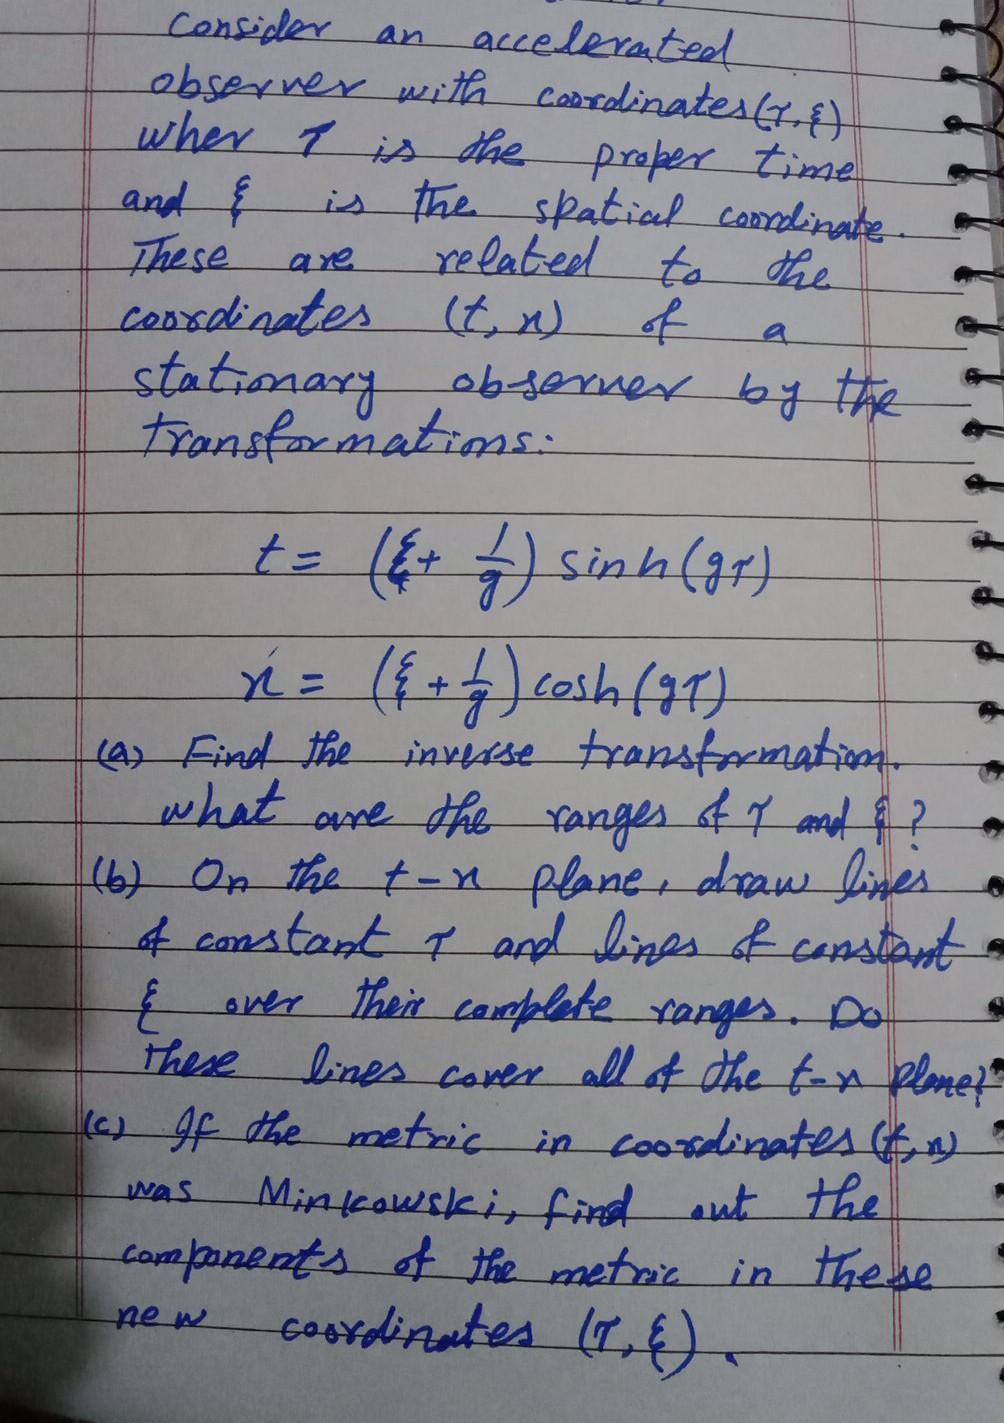 Consider an accelerated
observer with coordinates (τ, ξ)
wher τ is the proper time
and ξ is the spatial coordinate.
These are related to the
coordinates (t, x) of a
stationary observer by the
transformations:
t = (ξ + 1/g) sinh(gτ)
x = (ξ + 1/g) cosh(gτ)
(a) Find the inverse transformation.
What are the ranges of τ and ξ?
(b) On the t-x plane, draw lines
of constant τ and lines of constant
ξ over their complete ranges. Do
these lines cover all of the t-x plane?
(c) If the metric in coordinates (t, x)
was Minkowski, find out the
components of the metric in these
new coordinates (τ, ξ).